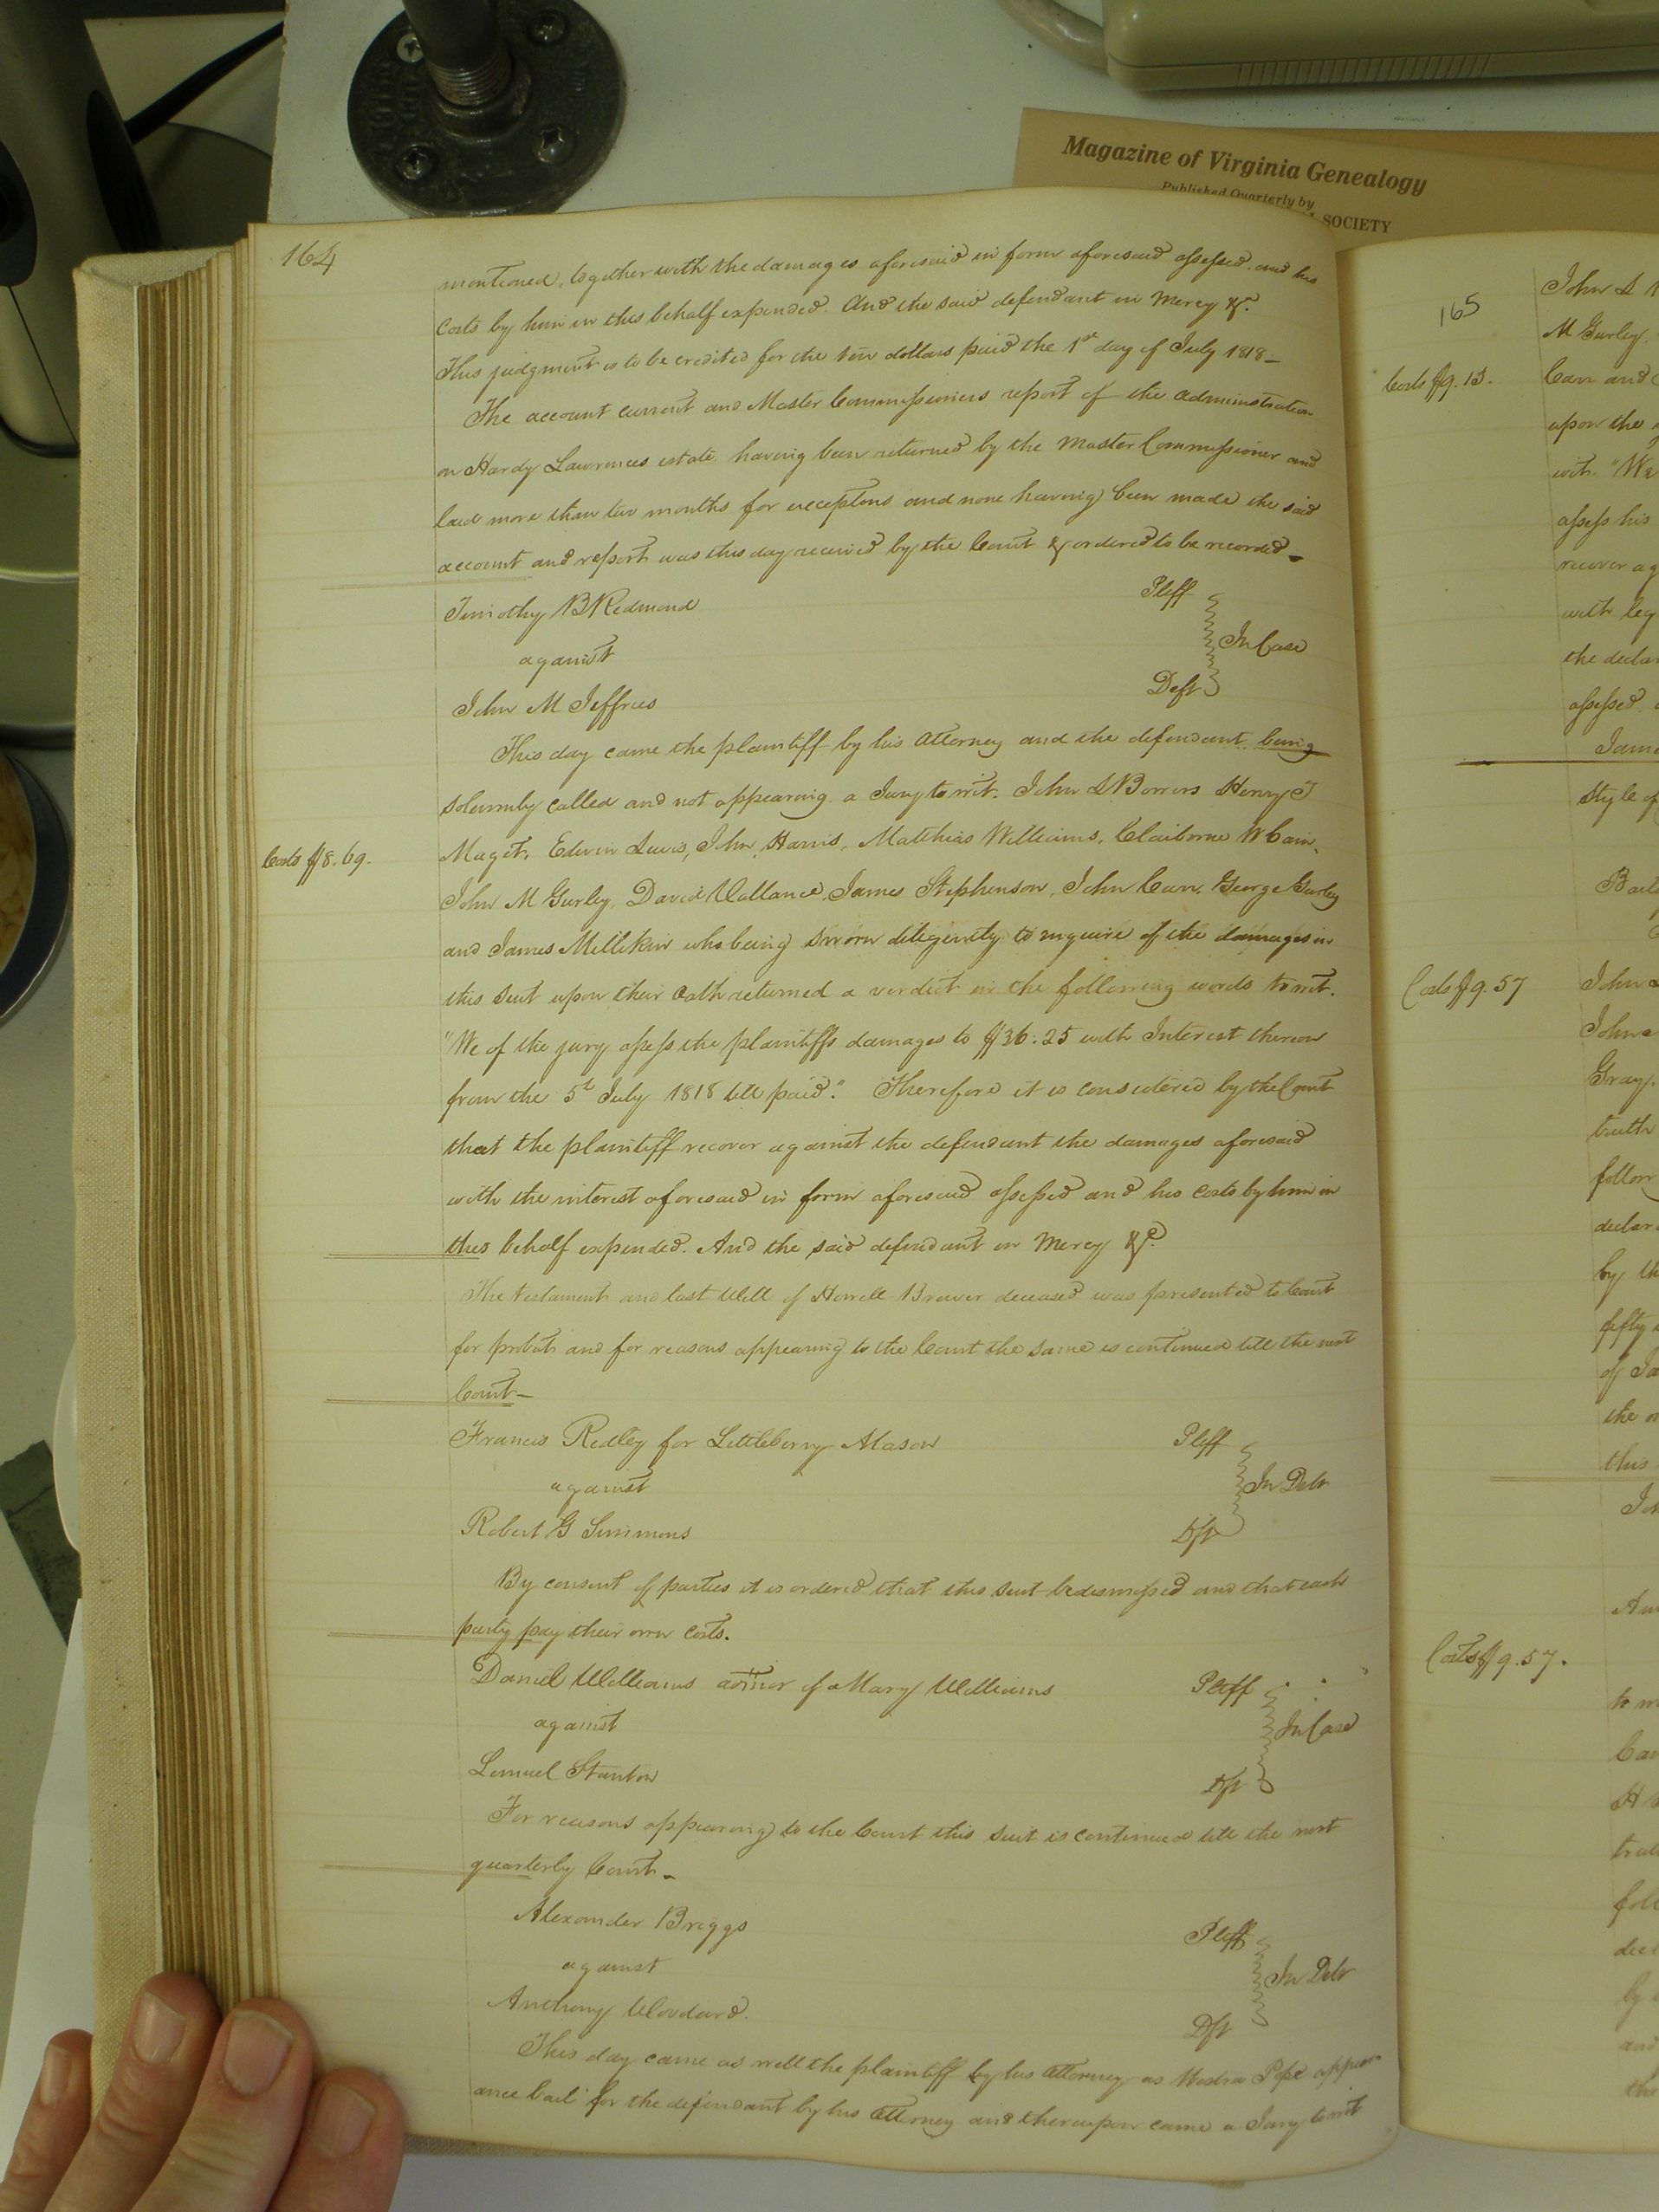 Magazine of Virginia Genealogy
Published Quarterly by
SOCIETY
164
mentioned, together with the damages aforesaid in form aforesaid assessed and his
Costs by him in this behalf expended. And the said defendant in Mercy &c.
This judgment is to be credited for the ten dollars paid the 1st day of July 1818 –
The account current and Master Commissioners report of the administration
on Hardy Lawrences estate having been returned by the Master Commissioner and
laid more than two months for exceptons and none having been made the said
account and report was this day received by the Court & ordered to be recorded –
Timothy B Redmond Pltff
against In Case
John M Jeffries Deft
This day came the plaintiff by his Attorney and the defendant being
Solemnly called and not appearing a Jury to wit. John D Borrers Henry J
Costs $8.69.
Maget, Edwin Lewis, John Harris, Matthias Williams, Claiborne W Cain,
John M Gurley, David Vallance, James Stephenson, John Carr, George Gurley
and James Millikin who being sworn diligently to inquire of the damages in
this suit upon their oath returned a verdict in the following words to wit.
"We of the jury assess the plaintiffs damages to $36:25 with Interest thereon
from the 5th July 1818 till paid." Therefore it is considered by the Court
that the plaintiff recover against the defendant the damages aforesaid
with the interest aforesaid in form aforesaid assessed and his costs by him in
this behalf expended. And the said defendant in Mercy &c.
The testament and last Will of Howell Brewer deceased was presented to Court
for probat and for reasons appearing to the Court the same is continued till the next
Court –
Francis Ridley for Littleberry Mason Pltff
against In Debt
Robert G Simmons Dft
By consent of parties it is ordered that this suit be dismissed and that each
party pay their own costs.
Daniel Williams admor of Mary Williams Pltff
against In Case
Lemuel Stanton Dft
For reasons appearing to the Court this suit is continued till the next
quarterly Court –
Alexander Briggs Pltff
against In Debt
Anthony Woodard. Dft
This day came as well the plaintiff by his Attorney as Pope appear
ance bail for the defendant by his Attorney and thereupon came a Jury to wit
165
John D
M Gurley,
Costs $9.13.
Carr and
upon the
wit. "We
assess his
recover ag
with leg
the declar
assessed
Jame
Style of
Costs $9.57
John
John
Gray,
truth
follow
declar
by th
fifty
of Ja
the
this
Costs $9.57.